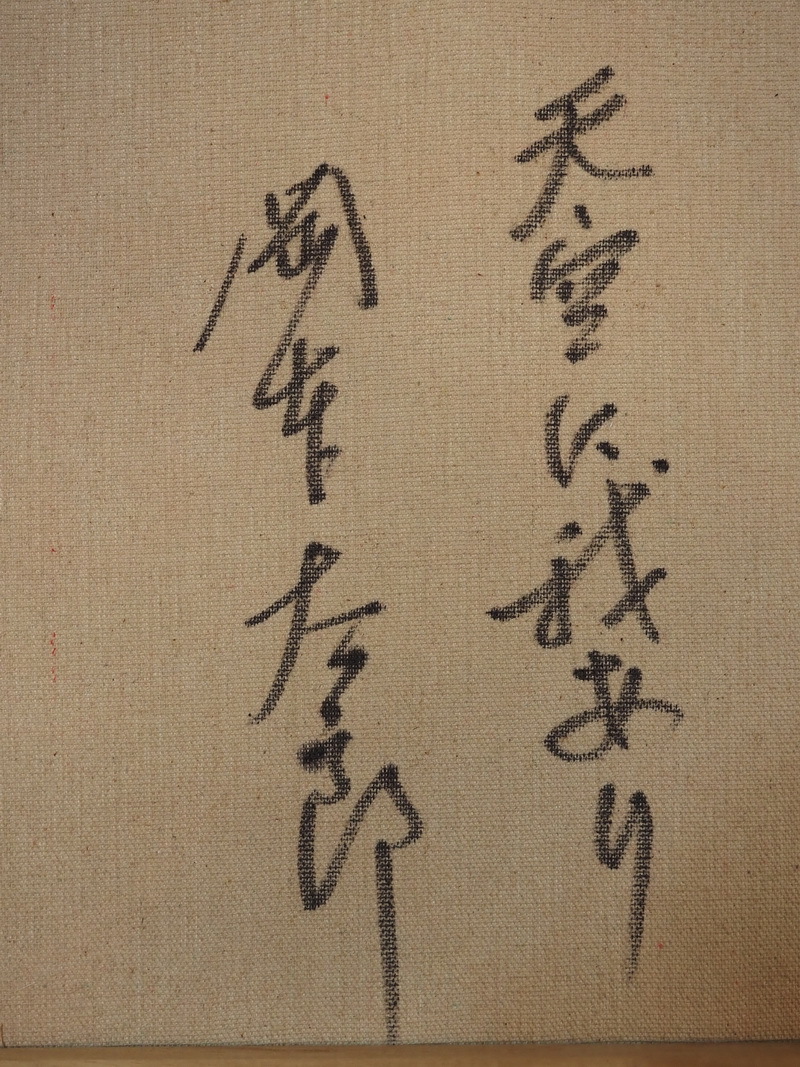 天空に我あり
岡本太郎